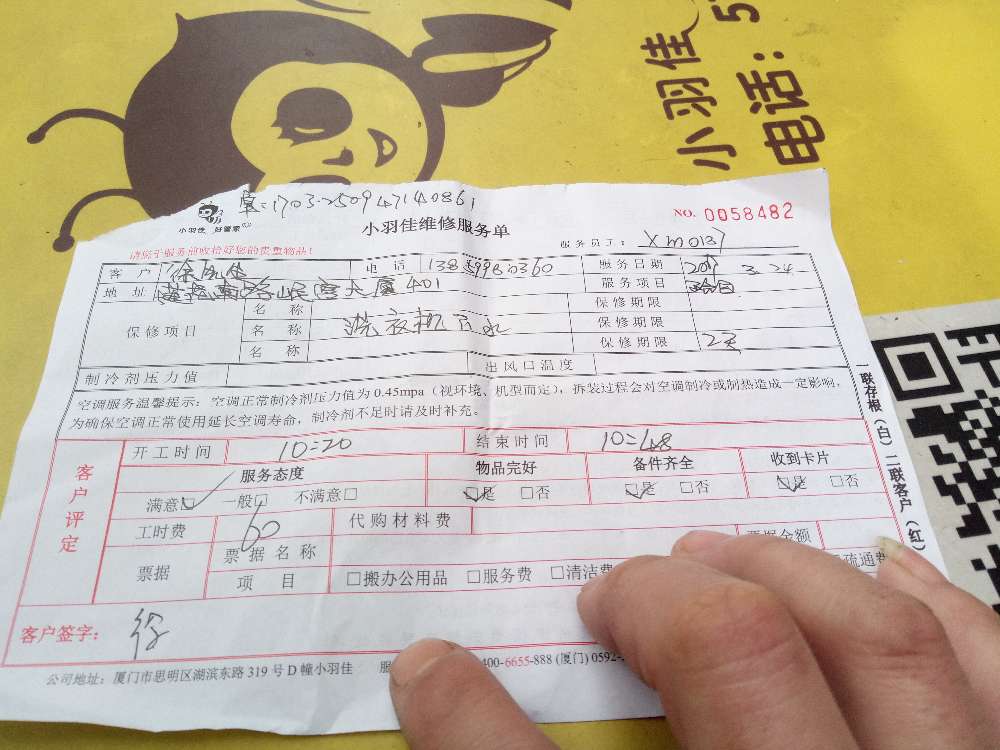 小羽佳
电话：5
单：1703250947140861
小羽佳 好管家
小羽佳维修服务单
NO. 0058482
请您于服务前收拾好您的贵重物品！
服务员工： XM0137
客户 电话 服务日期 3.24
地址 大厦401 服务项目
保修项目 名称 保修期限
名称 洗衣机 保修期限
名称 保修期限 2天
制冷剂压力值 出风口温度
空调服务温馨提示：空调正常制冷剂压力值为0.45mpa（视环境、机型而定），拆装过程会对空调制冷或制热造成一定影响，
为确保空调正常使用延长空调寿命，制冷剂不足时请及时补充。
客户评定
开工时间 10:20 结束时间 10:48
服务态度 物品完好 备件齐全 收到卡片
满意☑ 一般□ 不满意□ ☑是 □否 ☑是 □否 ☑是 □否
工时费 60 代购材料费
票据 票据名称 票据金额
项目 □搬办公用品 □服务费 □清洁费 疏通费
客户签字： 徐
公司地址：厦门市思明区湖滨东路319号D幢小羽佳 服 400-6655-888 (厦门) 0592-
一联存根（白）二联客户（红）